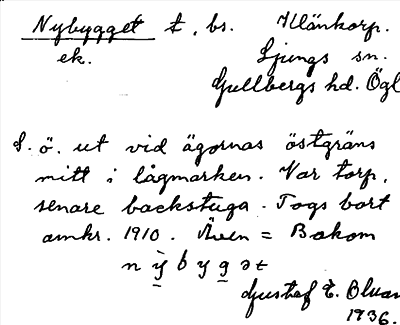 Nybygget t, bs. Ullänkorp.
ek. Ljungs sn.
Gullbergs hd. Ögl
S. ö. ut vid ägornas östgräns
mitt i lågmarken. Var torp,
senare backstuga. Togs bort
omkr. 1910. Även = Bakom
nẏbygət
Gustaf E.
1936.